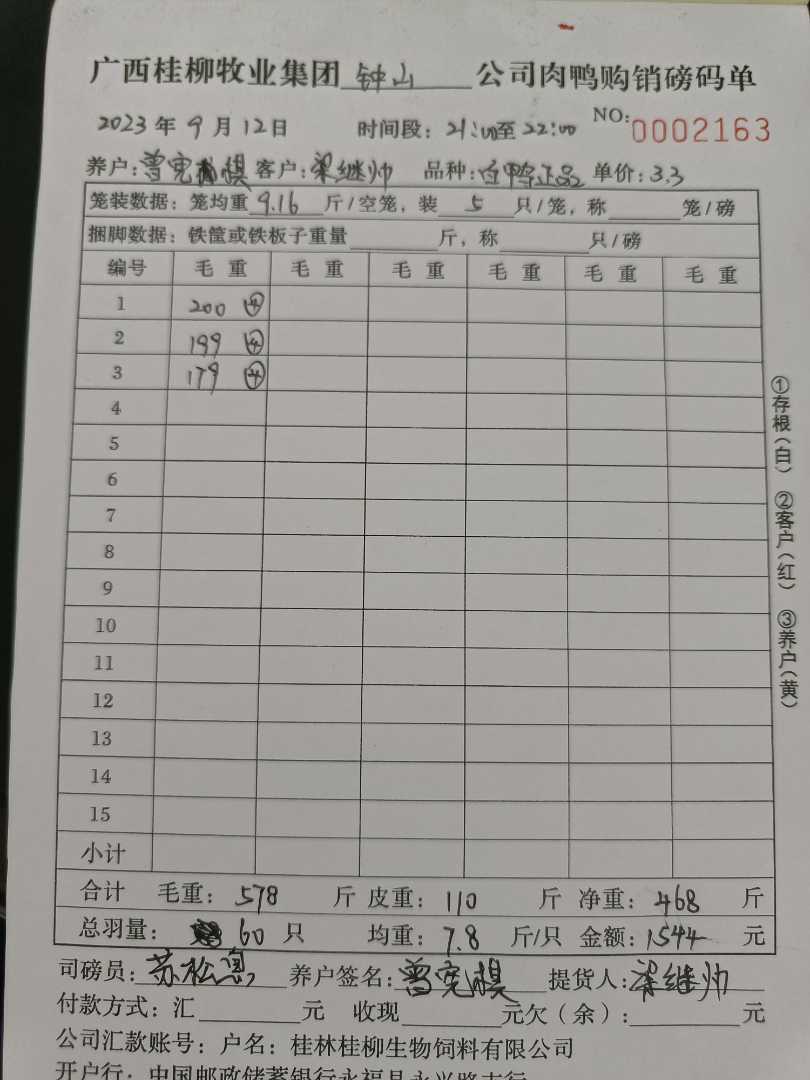 广西桂柳牧业集团 钟山 公司肉鸭购销磅码单
2023年9月12日 时间段：21:00至22:00 NO：0002163
养户：曾宪模 客户：梁继帅 品种：白鸭正品 单价：3.3
笼装数据：笼均重 9.16 斤/空笼，装 5 只/笼，称 笼/磅
捆脚数据：铁筐或铁板子重量 斤，称 只/磅
编号 毛重 毛重 毛重 毛重 毛重 毛重
1 200 ④
2 199 ④
3 179 ④
4
5
6
7
8
9
10
11
12
13
14
15
小计
合计 毛重：578 斤 皮重：110 斤 净重：468 斤
总羽量：60 只 均重：7.8 斤/只 金额：1544 元
司磅员：苏松 养户签名：曾宪模 提货人：梁继帅
付款方式：汇 元 收现 元欠（余）：元
公司汇款账号：户名：桂林桂柳生物饲料有限公司
开户行：中国邮政储蓄银行永福县永兴路支行
①存根（白） ②客户（红） ③养户（黄）